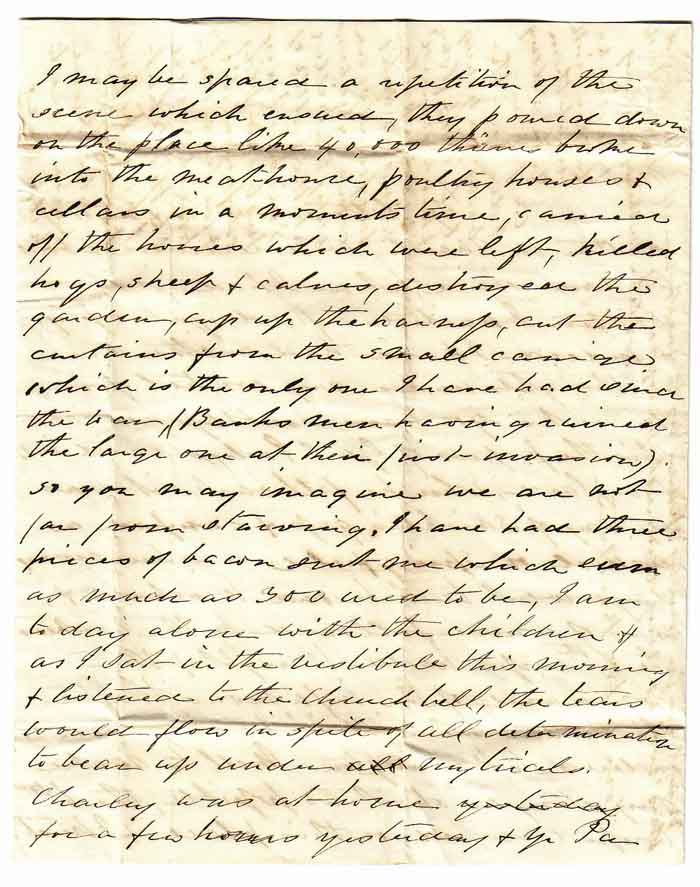 I may be spared a repetition of the
scene which ensued, they poured down
on the place like 40,000 thieves broke
into the meat house, poultry houses &
cellars in a moments time, carried
off the horses which were left, killed
hogs, sheep & calves, destroyed the
garden, cup up the harness, cut the
curtains from the small carriage
which is the only one I have had since
the war, (Banks men having ruined
the large one at their first invasion).
so you may imagine we are not
far from starving. I have had three
pieces of bacon sent me which seem
as much as 300 used to be, I am
to day alone with the children &
as I sat in the vestibule this morning
& listened to the church bell, the tears
would flow in spite of all determination
to bear up under all my trials.
Charley was at home yesterday
for a few hours yesterday & yr Pa